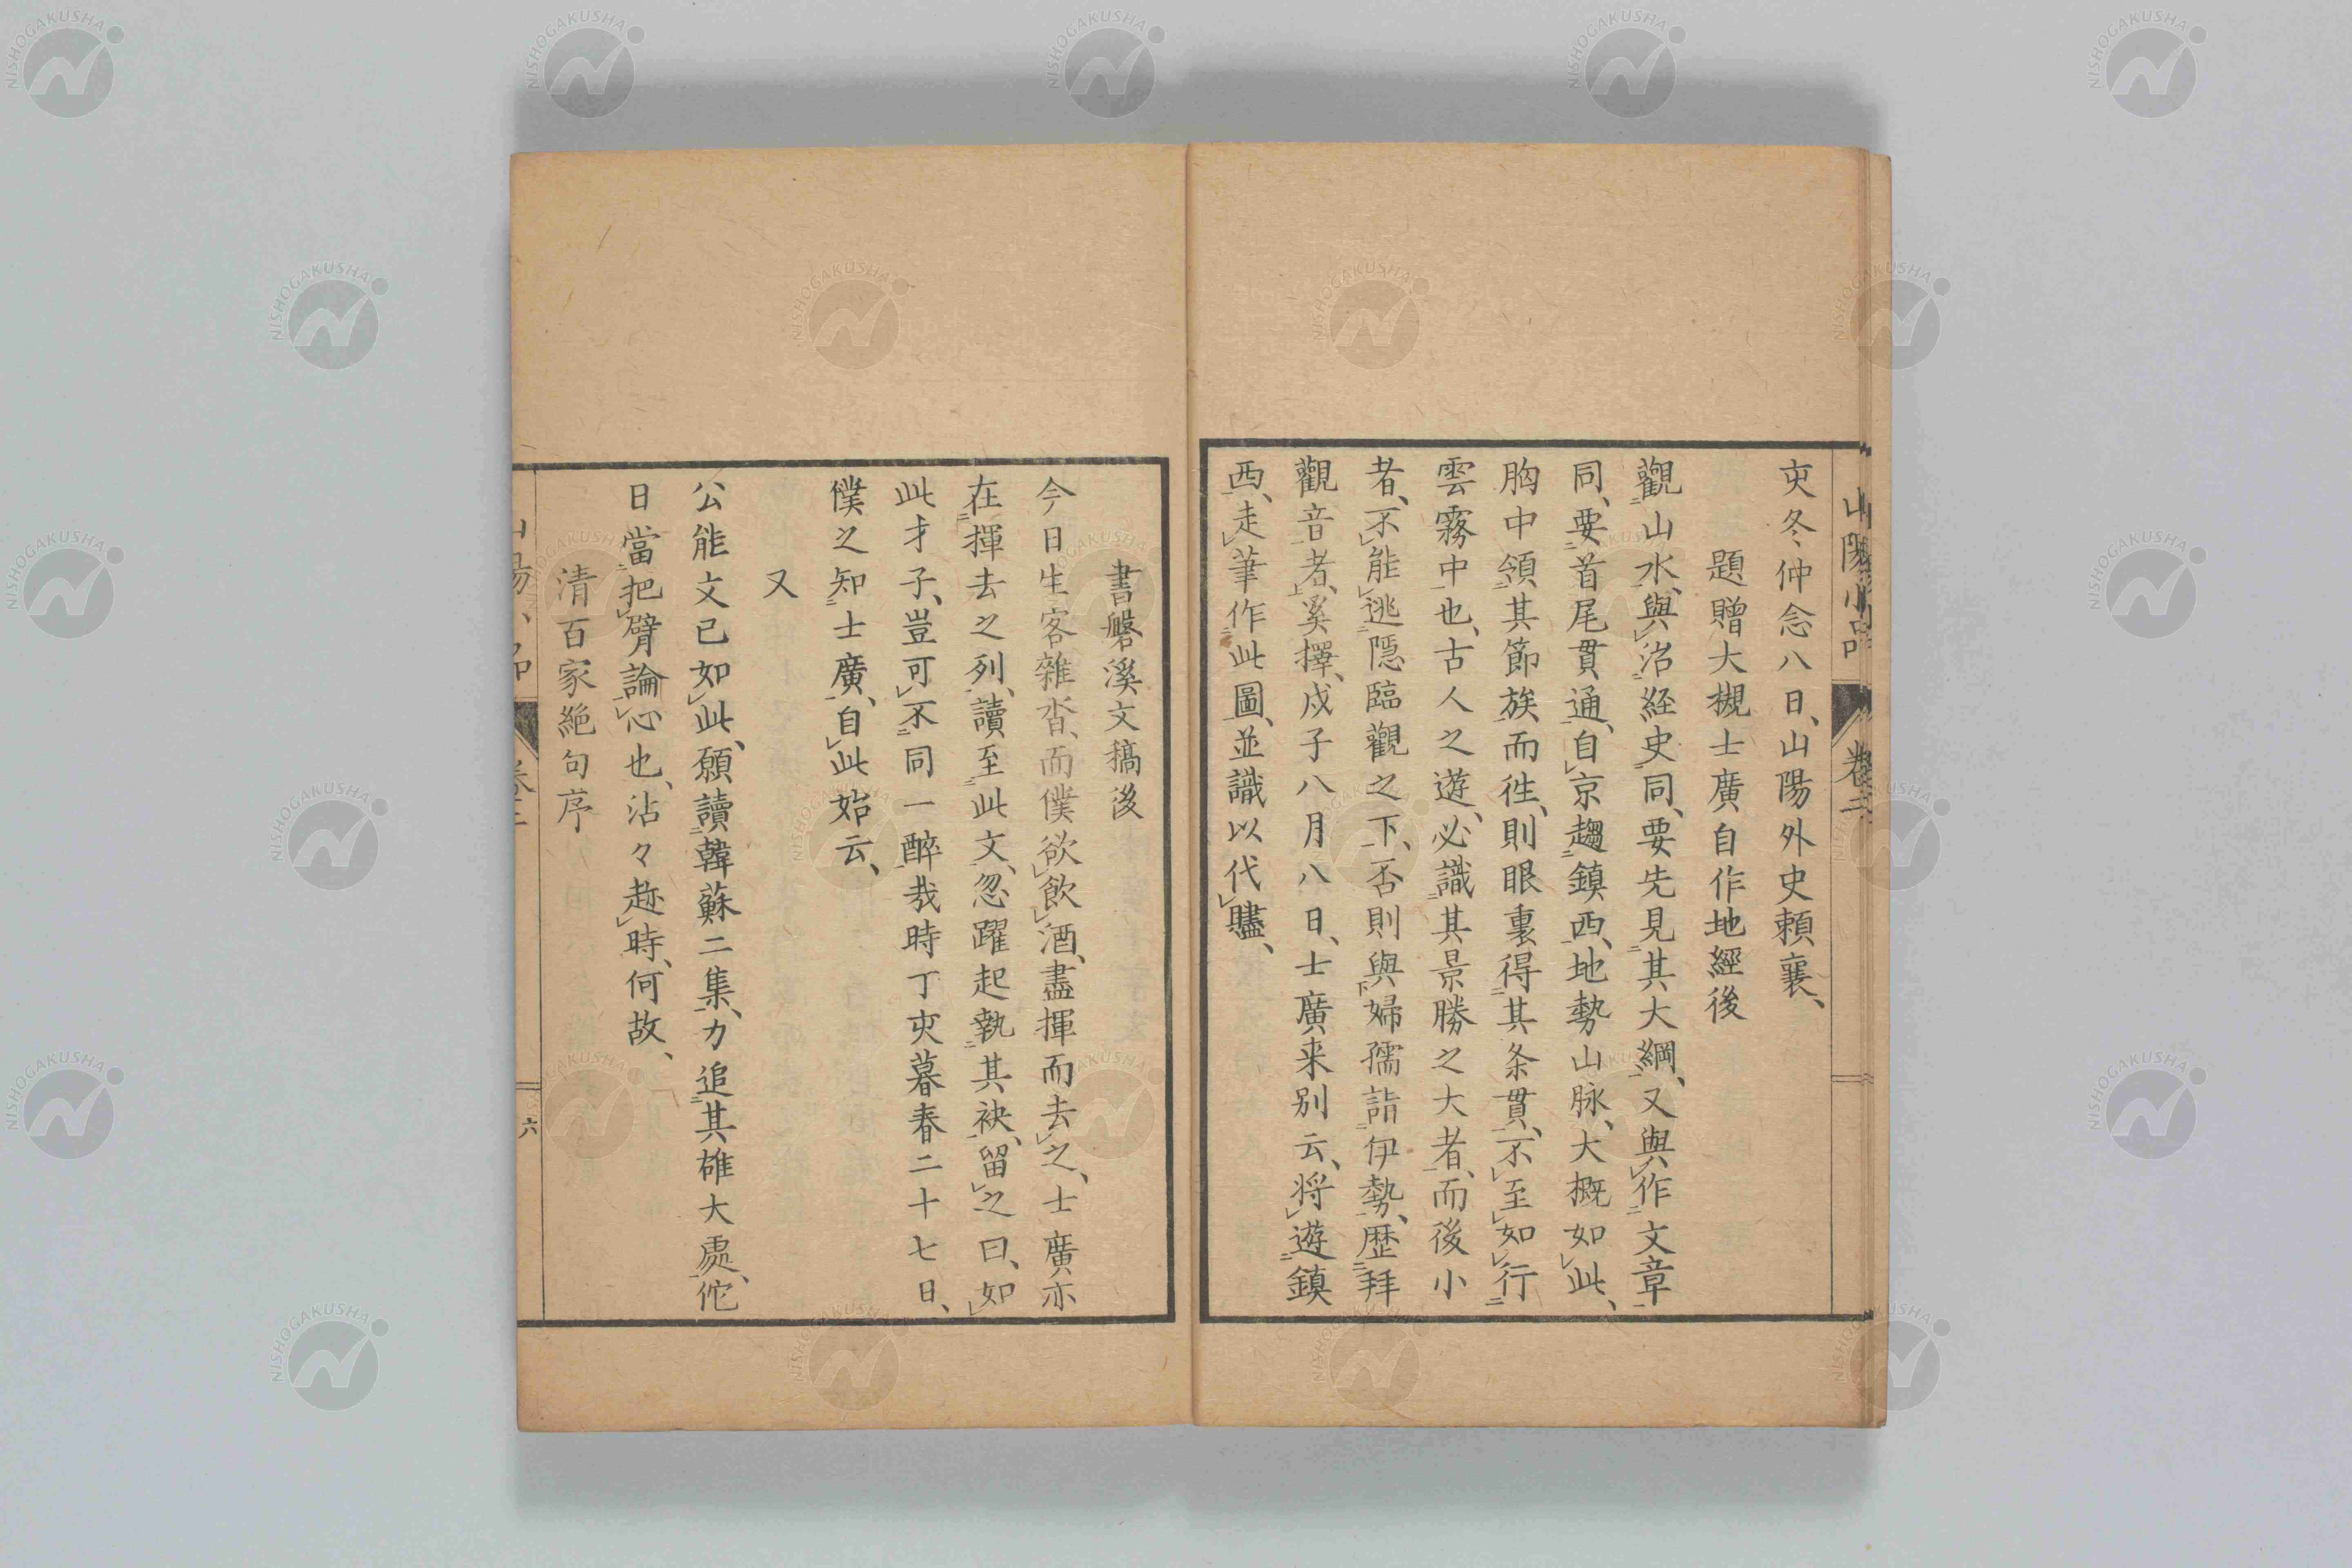 山陽小品 卷二
亥冬仲念八日、山陽外史賴襄、
題贈大槻士廣自作地經後
觀山水、與治経史同、要先見其大綱、又與作文章
同、要首尾貫通、自京趨鎮西、地勢山脉、大概如此、
胸中領其節族而徃、則眼裏得其条貫、不至如行
雲霧中也、古人之遊、必識其景勝之大者、而後小
者、不能逃隠臨觀之下、否則與婦孺詣伊勢、歷拜
觀音者、奚擇、戍子八月八日、士廣来别云、将遊鎮
西、走筆作此圖、並識以代贐、
書磐溪文稿後
今日生客雜沓、而僕欲飲酒、盡揮而去之、士廣亦
在揮去之列、讀至此文、忽躍起執其袂、留之曰、如
此才子、豈可不同一醉哉時丁亥暮春二十七日、
僕之知士廣、自此始云、
又
公能文已如此、願讀韓蘇二集、力追其雄大處、佗
日當把臂論心也、沾々趂時、何故、
清百家絶句序
山陽小品 卷二 六
NISHOGAKUSHA